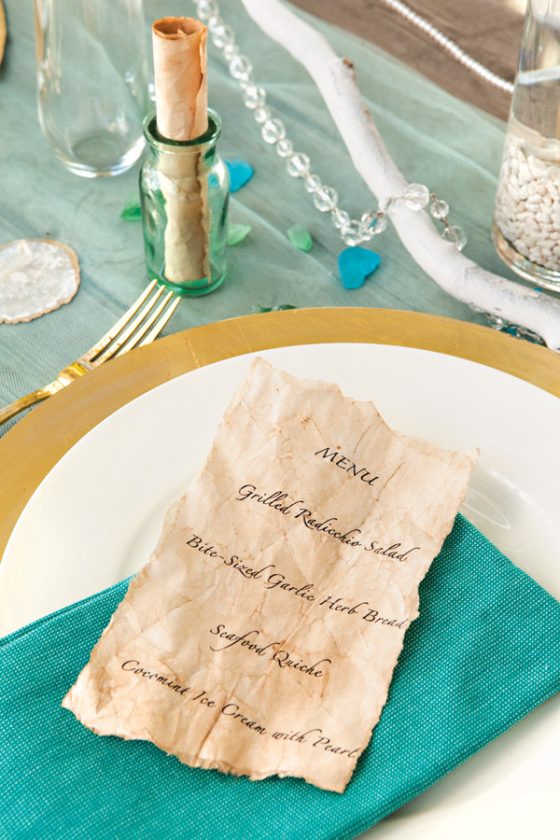 MENU
Grilled Radicchio Salad
Bite-Sized Garlic Herb Bread
Seafood Quiche
Cocomint Ice Cream with Pearl